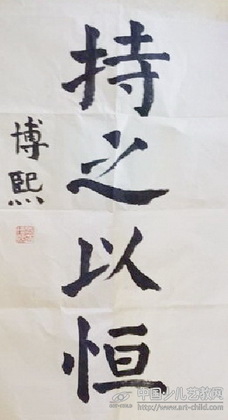 持之以恒
博熙
中国少儿艺教网
http://www.art-child.com